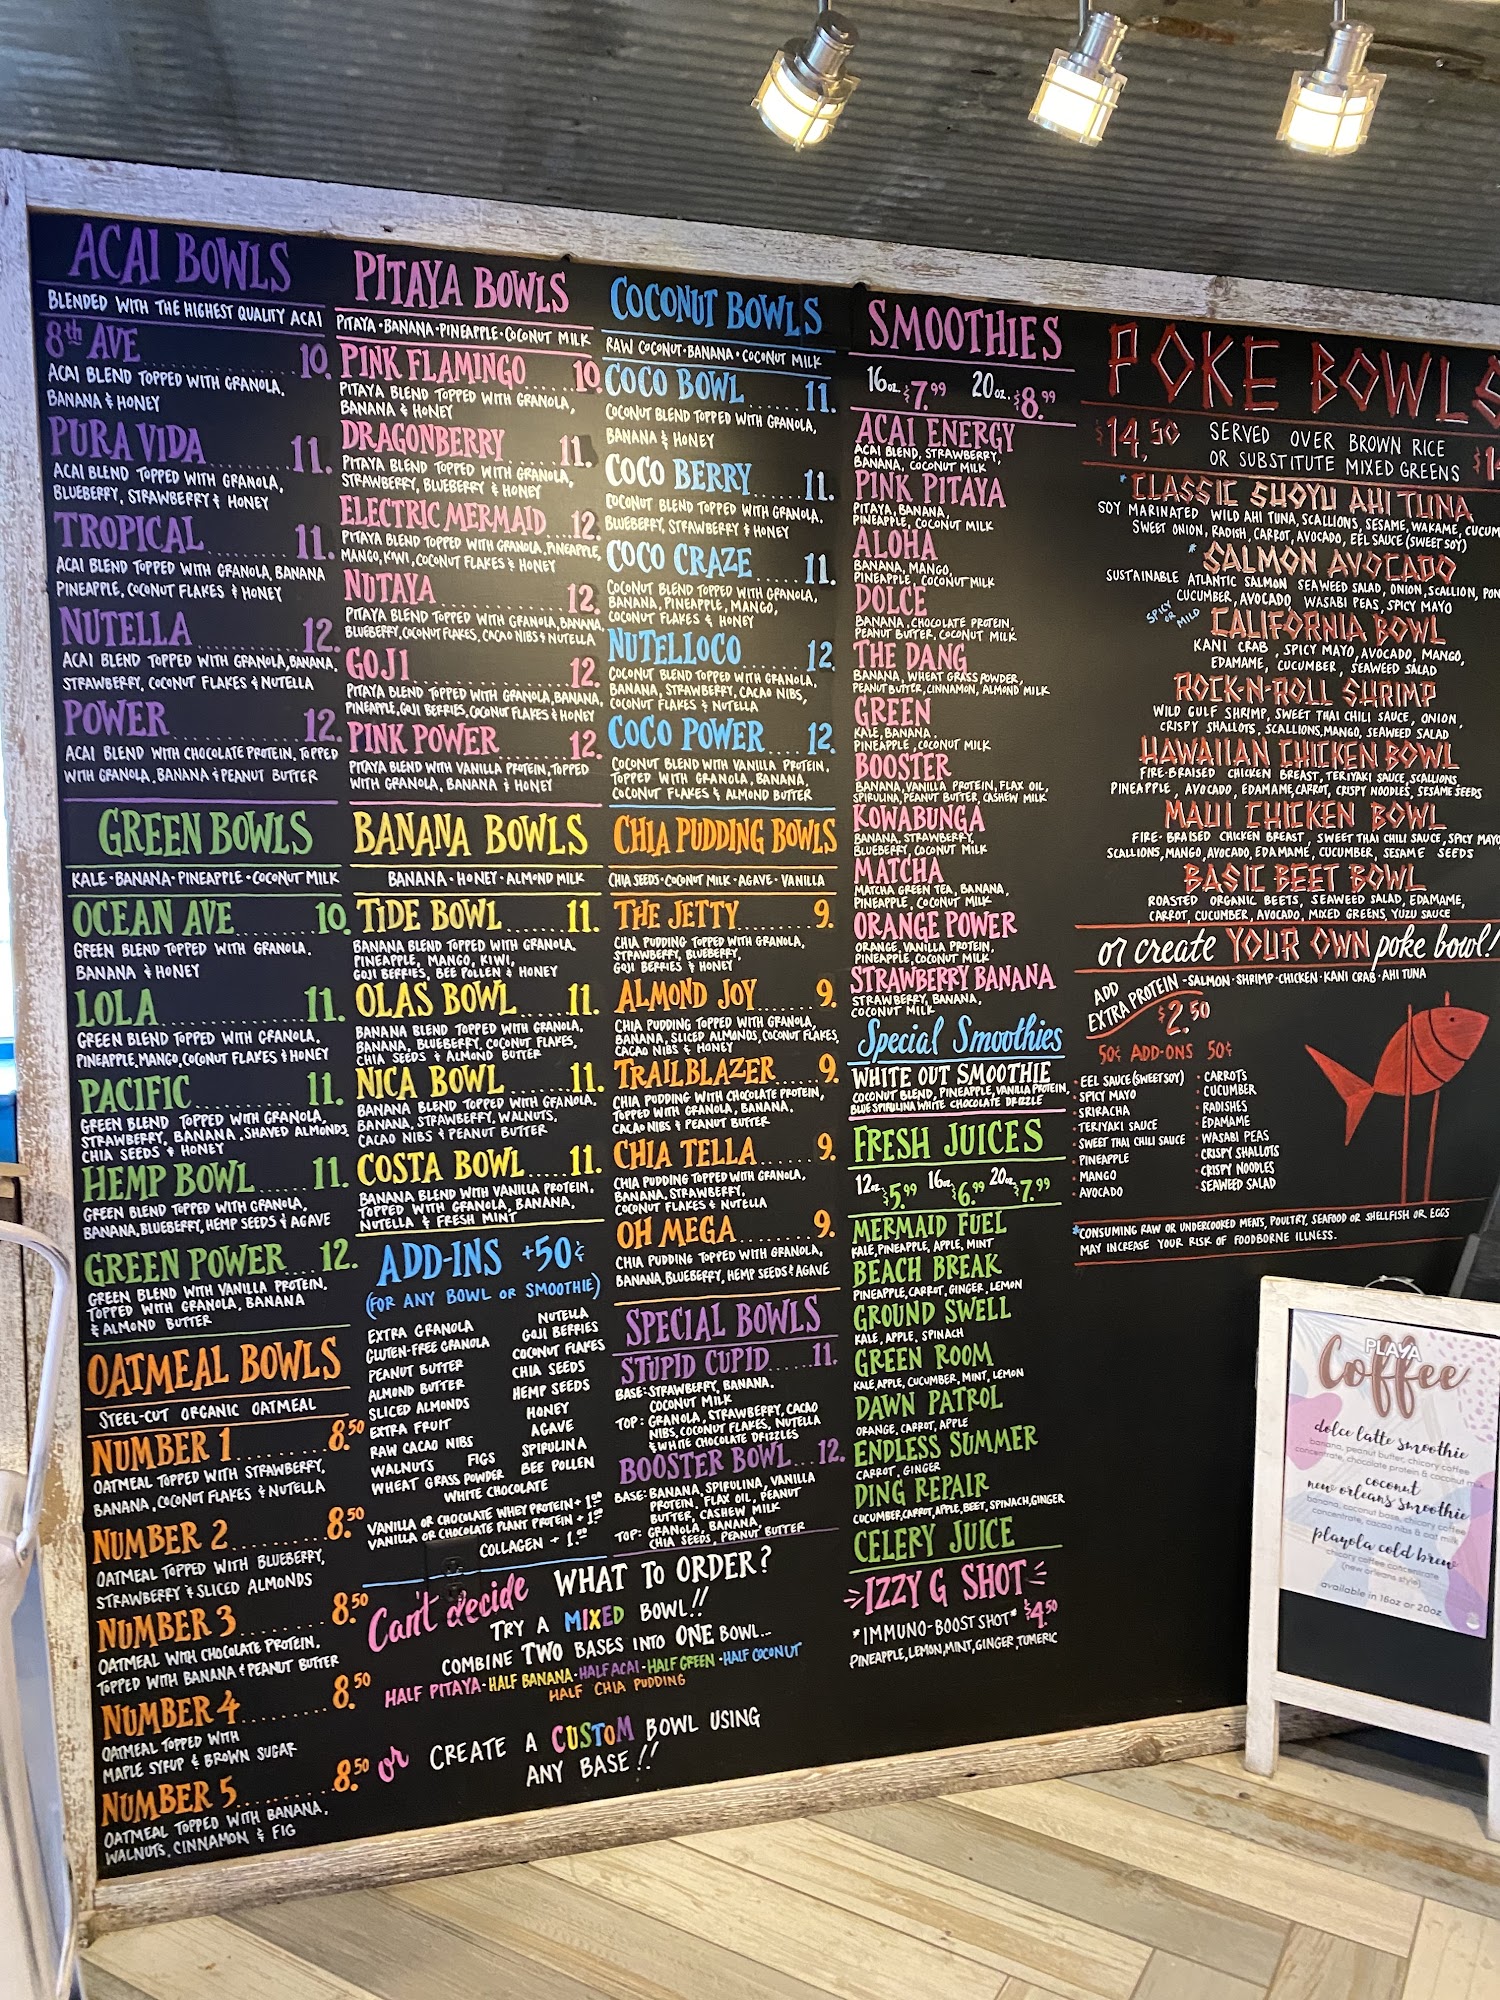 ACAI BOWLS
BLENDED WITH THE HIGHEST QUALITY ACAI
8th AVE 10.
ACAI BLEND TOPPED WITH GRANOLA,
BANANA & HONEY
PURA VIDA 11.
ACAI BLEND TOPPED WITH GRANOLA,
BLUEBERRY, STRAWBERRY & HONEY
TROPICAL 11.
ACAI BLEND TOPPED WITH GRANOLA, BANANA
PINEAPPLE, COCONUT FLAKES & HONEY
NUTELLA 12.
ACAI BLEND TOPPED WITH GRANOLA, BANANA,
STRAWBERRY, COCONUT FLAKES & NUTELLA
POWER 12.
ACAI BLEND WITH CHOCOLATE PROTEIN, TOPPED
WITH GRANOLA, BANANA & PEANUT BUTTER
GREEN BOWLS
KALE • BANANA • PINEAPPLE • COCONUT MILK
OCEAN AVE 10.
GREEN BLEND TOPPED WITH GRANOLA.
BANANA & HONEY
LOLA 11.
GREEN BLEND TOPPED WITH GRANOLA,
PINEAPPLE, MANGO, COCONUT FLAKES & HONEY
PACIFIC 11.
GREEN BLEND TOPPED WITH GRANOLA,
STRAWBERRY, BANANA, SHAVED ALMONDS,
CHIA SEEDS & HONEY
HEMP BOWL 11.
GREEN BLEND TOPPED WITH GRANOLA,
BANANA, BLUEBERRY, HEMP SEEDS & AGAVE
GREEN POWER 12.
GREEN BLEND WITH VANILLA PROTEIN,
TOPPED WITH GRANOLA, BANANA
& ALMOND BUTTER
OATMEAL BOWLS
STEEL-CUT ORGANIC OATMEAL
NUMBER 1 8.50
OATMEAL TOPPED WITH STRAWBERRY,
BANANA, COCONUT FLAKES & NUTELLA
NUMBER 2 8.50
OATMEAL TOPPED WITH BLUEBERRY,
STRAWBERRY & SLICED ALMONDS
NUMBER 3 8.50
OATMEAL WITH CHOCOLATE PROTEIN,
TOPPED WITH BANANA & PEANUT BUTTER
NUMBER 4 8.50
OATMEAL TOPPED WITH
MAPLE SYRUP & BROWN SUGAR
NUMBER 5 8.50
OATMEAL TOPPED WITH BANANA,
WALNUTS, CINNAMON & FIG
PITAYA BOWLS
PITAYA • BANANA • PINEAPPLE • COCONUT MILK
PINK FLAMINGO 10.
PITAYA BLEND TOPPED WITH GRANOLA,
BANANA & HONEY
DRAGONBERRY 11.
PITAYA BLEND TOPPED WITH GRANOLA,
STRAWBERRY, BLUEBERRY & HONEY
ELECTRIC MERMAID 12.
PITAYA BLEND TOPPED WITH GRANOLA, PINEAPPLE,
MANGO, KIWI, COCONUT FLAKES & HONEY
NUTAYA 12.
PITAYA BLEND TOPPED WITH GRANOLA, BANANA,
BLUEBERRY, COCONUT FLAKES, CACAO NIBS & NUTELLA
GOJI 12.
PITAYA BLEND TOPPED WITH GRANOLA, BANANA,
PINEAPPLE, GOJI BERRIES, COCONUT FLAKES & HONEY
PINK POWER 12.
PITAYA BLEND WITH VANILLA PROTEIN, TOPPED
WITH GRANOLA, BANANA & HONEY
BANANA BOWLS
BANANA • HONEY • ALMOND MILK
TIDE BOWL 11.
BANANA BLEND TOPPED WITH GRANOLA,
PINEAPPLE, MANGO, KIWI,
GOJI BERRIES, BEE POLLEN & HONEY
OLAS BOWL 11.
BANANA BLEND TOPPED WITH GRANOLA,
BANANA, BLUEBERRY, COCONUT FLAKES,
CHIA SEEDS & ALMOND BUTTER
NICA BOWL 11.
BANANA BLEND TOPPED WITH GRANOLA,
BANANA, STRAWBERRY, WALNUTS,
CACAO NIBS & PEANUT BUTTER
COSTA BOWL 11.
BANANA BLEND WITH VANILLA PROTEIN,
TOPPED WITH GRANOLA, BANANA,
NUTELLA & FRESH MINT
ADD-INS +50¢
(FOR ANY BOWL OR SMOOTHIE)
EXTRA GRANOLA
GLUTEN-FREE GRANOLA
PEANUT BUTTER
ALMOND BUTTER
SLICED ALMONDS
EXTRA FRUIT
RAW CACAO NIBS
WALNUTS FIGS
WHEAT GRASS POWDER
NUTELLA
GOJI BERRIES
COCONUT FLAKES
CHIA SEEDS
HEMP SEEDS
HONEY
AGAVE
SPIRULINA
BEE POLLEN
WHITE CHOCOLATE
VANILLA OR CHOCOLATE WHEY PROTEIN + 1.00
VANILLA OR CHOCOLATE PLANT PROTEIN + 1.50
COLLAGEN + 1.00
Can't decide WHAT TO ORDER?
TRY A MIXED BOWL!!
COMBINE TWO BASES INTO ONE BOWL...
HALF PITAYA • HALF BANANA • HALF ACAI • HALF GREEN • HALF COCONUT
HALF CHIA PUDDING
or CREATE A CUSTOM BOWL USING
ANY BASE!!
COCONUT BOWLS
RAW COCONUT • BANANA • COCONUT MILK
COCO BOWL 11.
COCONUT BLEND TOPPED WITH GRANOLA,
BANANA & HONEY
COCO BERRY 11.
COCONUT BLEND TOPPED WITH GRANOLA,
BLUEBERRY, STRAWBERRY & HONEY
COCO CRAZE 11.
COCONUT BLEND TOPPED WITH GRANOLA,
BANANA, PINEAPPLE, MANGO,
COCONUT FLAKES & HONEY
NUTELLOCO 12
COCONUT BLEND TOPPED WITH GRANOLA,
BANANA, STRAWBERRY, CACAO NIBS,
COCONUT FLAKES & NUTELLA
COCO POWER 12.
COCONUT BLEND WITH VANILLA PROTEIN,
TOPPED WITH GRANOLA, BANANA,
COCONUT FLAKES & ALMOND BUTTER
CHIA PUDDING BOWLS
CHIA SEEDS • COCONUT MILK • AGAVE • VANILLA
THE JETTY 9.
CHIA PUDDING TOPPED WITH GRANOLA,
STRAWBERRY, BLUEBERRY,
GOJI BERRIES & HONEY
ALMOND JOY 9.
CHIA PUDDING TOPPED WITH GRANOLA,
BANANA, SLICED ALMONDS, COCONUT FLAKES,
CACAO NIBS & HONEY
TRAILBLAZER 9.
CHIA PUDDING WITH CHOCOLATE PROTEIN,
TOPPED WITH GRANOLA, BANANA,
CACAO NIBS & PEANUT BUTTER
CHIA TELLA 9.
CHIA PUDDING TOPPED WITH GRANOLA,
BANANA, STRAWBERRY,
COCONUT FLAKES & NUTELLA
OH MEGA 9.
CHIA PUDDING TOPPED WITH GRANOLA,
BANANA, BLUEBERRY, HEMP SEEDS & AGAVE
SPECIAL BOWLS
STUPID CUPID 11.
BASE: STRAWBERRY, BANANA,
COCONUT MILK
TOP: GRANOLA, STRAWBERRY, CACAO
NIBS, COCONUT FLAKES, NUTELLA
& WHITE CHOCOLATE DRIZZLES
BOOSTER BOWL 12.
BASE: BANANA, SPIRULINA, VANILLA
PROTEIN, FLAX OIL, PEANUT
BUTTER, CASHEW MILK
TOP: GRANOLA, BANANA,
CHIA SEEDS, PEANUT BUTTER
SMOOTHIES
16 oz. $7.99 20 oz. $8.99
ACAI ENERGY
ACAI BLEND, STRAWBERRY,
BANANA, COCONUT MILK
PINK PITAYA
PITAYA, BANANA,
PINEAPPLE, COCONUT MILK
ALOHA
BANANA, MANGO,
PINEAPPLE, COCONUT MILK
DOLCE
BANANA, CHOCOLATE PROTEIN,
PEANUT BUTTER, COCONUT MILK
THE DANG
BANANA, WHEAT GRASS POWDER,
PEANUT BUTTER, CINNAMON, ALMOND MILK
GREEN
KALE, BANANA,
PINEAPPLE, COCONUT MILK
BOOSTER
BANANA, VANILLA PROTEIN, FLAX OIL,
SPIRULINA, PEANUT BUTTER, CASHEW MILK
KOWABUNGA
BANANA, STRAWBERRY,
BLUEBERRY, COCONUT MILK
MATCHA
MATCHA GREEN TEA, BANANA,
PINEAPPLE, COCONUT MILK
ORANGE POWER
ORANGE, VANILLA PROTEIN,
PINEAPPLE, COCONUT MILK
STRAWBERRY BANANA
STRAWBERRY, BANANA,
COCONUT MILK
Special Smoothies
WHITE OUT SMOOTHIE
COCONUT BLEND, PINEAPPLE, VANILLA PROTEIN,
BLUE SPIRULINA WHITE CHOCOLATE DRIZZLE
FRESH JUICES
12oz $5.99 16oz $6.99 20oz $7.99
MERMAID FUEL
KALE, PINEAPPLE, APPLE, MINT
BEACH BREAK
PINEAPPLE, CARROT, GINGER, LEMON
GROUND SWELL
KALE, APPLE, SPINACH
GREEN ROOM
KALE, APPLE, CUCUMBER, MINT, LEMON
DAWN PATROL
ORANGE, CARROT, APPLE
ENDLESS SUMMER
CARROT, GINGER
DING REPAIR
CUCUMBER, CARROT, APPLE, BEET, SPINACH, GINGER
CELERY JUICE
IZZY G SHOT
*IMMUNO-BOOST SHOT* $4.50
PINEAPPLE, LEMON, MINT, GINGER, TUMERIC
POKE BOWLS
$14.50 SERVED OVER BROWN RICE
OR SUBSTITUTE MIXED GREENS
*CLASSIC SHOYU AHI TUNA
SOY MARINATED WILD AHI TUNA, SCALLIONS, SESAME, WAKAME, CUCUM
SWEET ONION, RADISH, CARROT, AVOCADO, EEL SAUCE (SWEET SOY)
*SALMON AVOCADO
SUSTAINABLE ATLANTIC SALMON SEAWEED SALAD, ONION, SCALLION, PON
CUCUMBER, AVOCADO, WASABI PEAS, SPICY MAYO
SPICY OR MILD
CALIFORNIA BOWL
KANI CRAB, SPICY MAYO, AVOCADO, MANGO,
EDAMAME, CUCUMBER, SEAWEED SALAD
ROCK-N-ROLL SHRIMP
WILD GULF SHRIMP, SWEET THAI CHILI SAUCE, ONION,
CRISPY SHALLOTS, SCALLIONS, MANGO, SEAWEED SALAD
HAWAIIAN CHICKEN BOWL
FIRE-BRAISED CHICKEN BREAST, TERIYAKI SAUCE, SCALLIONS
PINEAPPLE, AVOCADO, EDAMAME, CARROT, CRISPY NOODLES, SESAME SEEDS
MAUI CHICKEN BOWL
FIRE-BRAISED CHICKEN BREAST, SWEET THAI CHILI SAUCE, SPICY MAYO
SCALLIONS, MANGO, AVOCADO, EDAMAME, CUCUMBER, SESAME SEEDS
BASIC BEET BOWL
ROASTED ORGANIC BEETS, SEAWEED SALAD, EDAMAME,
CARROT, CUCUMBER, AVOCADO, MIXED GREENS, YUZU SAUCE
or create YOUR OWN poke bowl!
ADD EXTRA PROTEIN - SALMON • SHRIMP • CHICKEN • KANI CRAB • AHI TUNA
$2.50
50¢ ADD-ONS 50¢
• EEL SAUCE (SWEET SOY)
• SPICY MAYO
• SRIRACHA
• TERIYAKI SAUCE
• SWEET THAI CHILI SAUCE
• PINEAPPLE
• MANGO
• AVOCADO
• CARROTS
• CUCUMBER
• RADISHES
• EDAMAME
• WASABI PEAS
• CRISPY SHALLOTS
• CRISPY NOODLES
• SEAWEED SALAD
*CONSUMING RAW OR UNDERCOOKED MEATS, POULTRY, SEAFOOD OR SHELLFISH OR EGGS
MAY INCREASE YOUR RISK OF FOODBORNE ILLNESS.
PLAYA
Coffee
dolce latte smoothie
banana, peanut butter, chicory coffee
concentrate, chocolate protein & coconut milk
coconut
new orleans smoothie
banana, coconut base, chicory coffee
concentrate, cacao nibs & oat milk
playola cold brew
chicory coffee concentrate
(new orleans style)
available in 16oz or 20oz